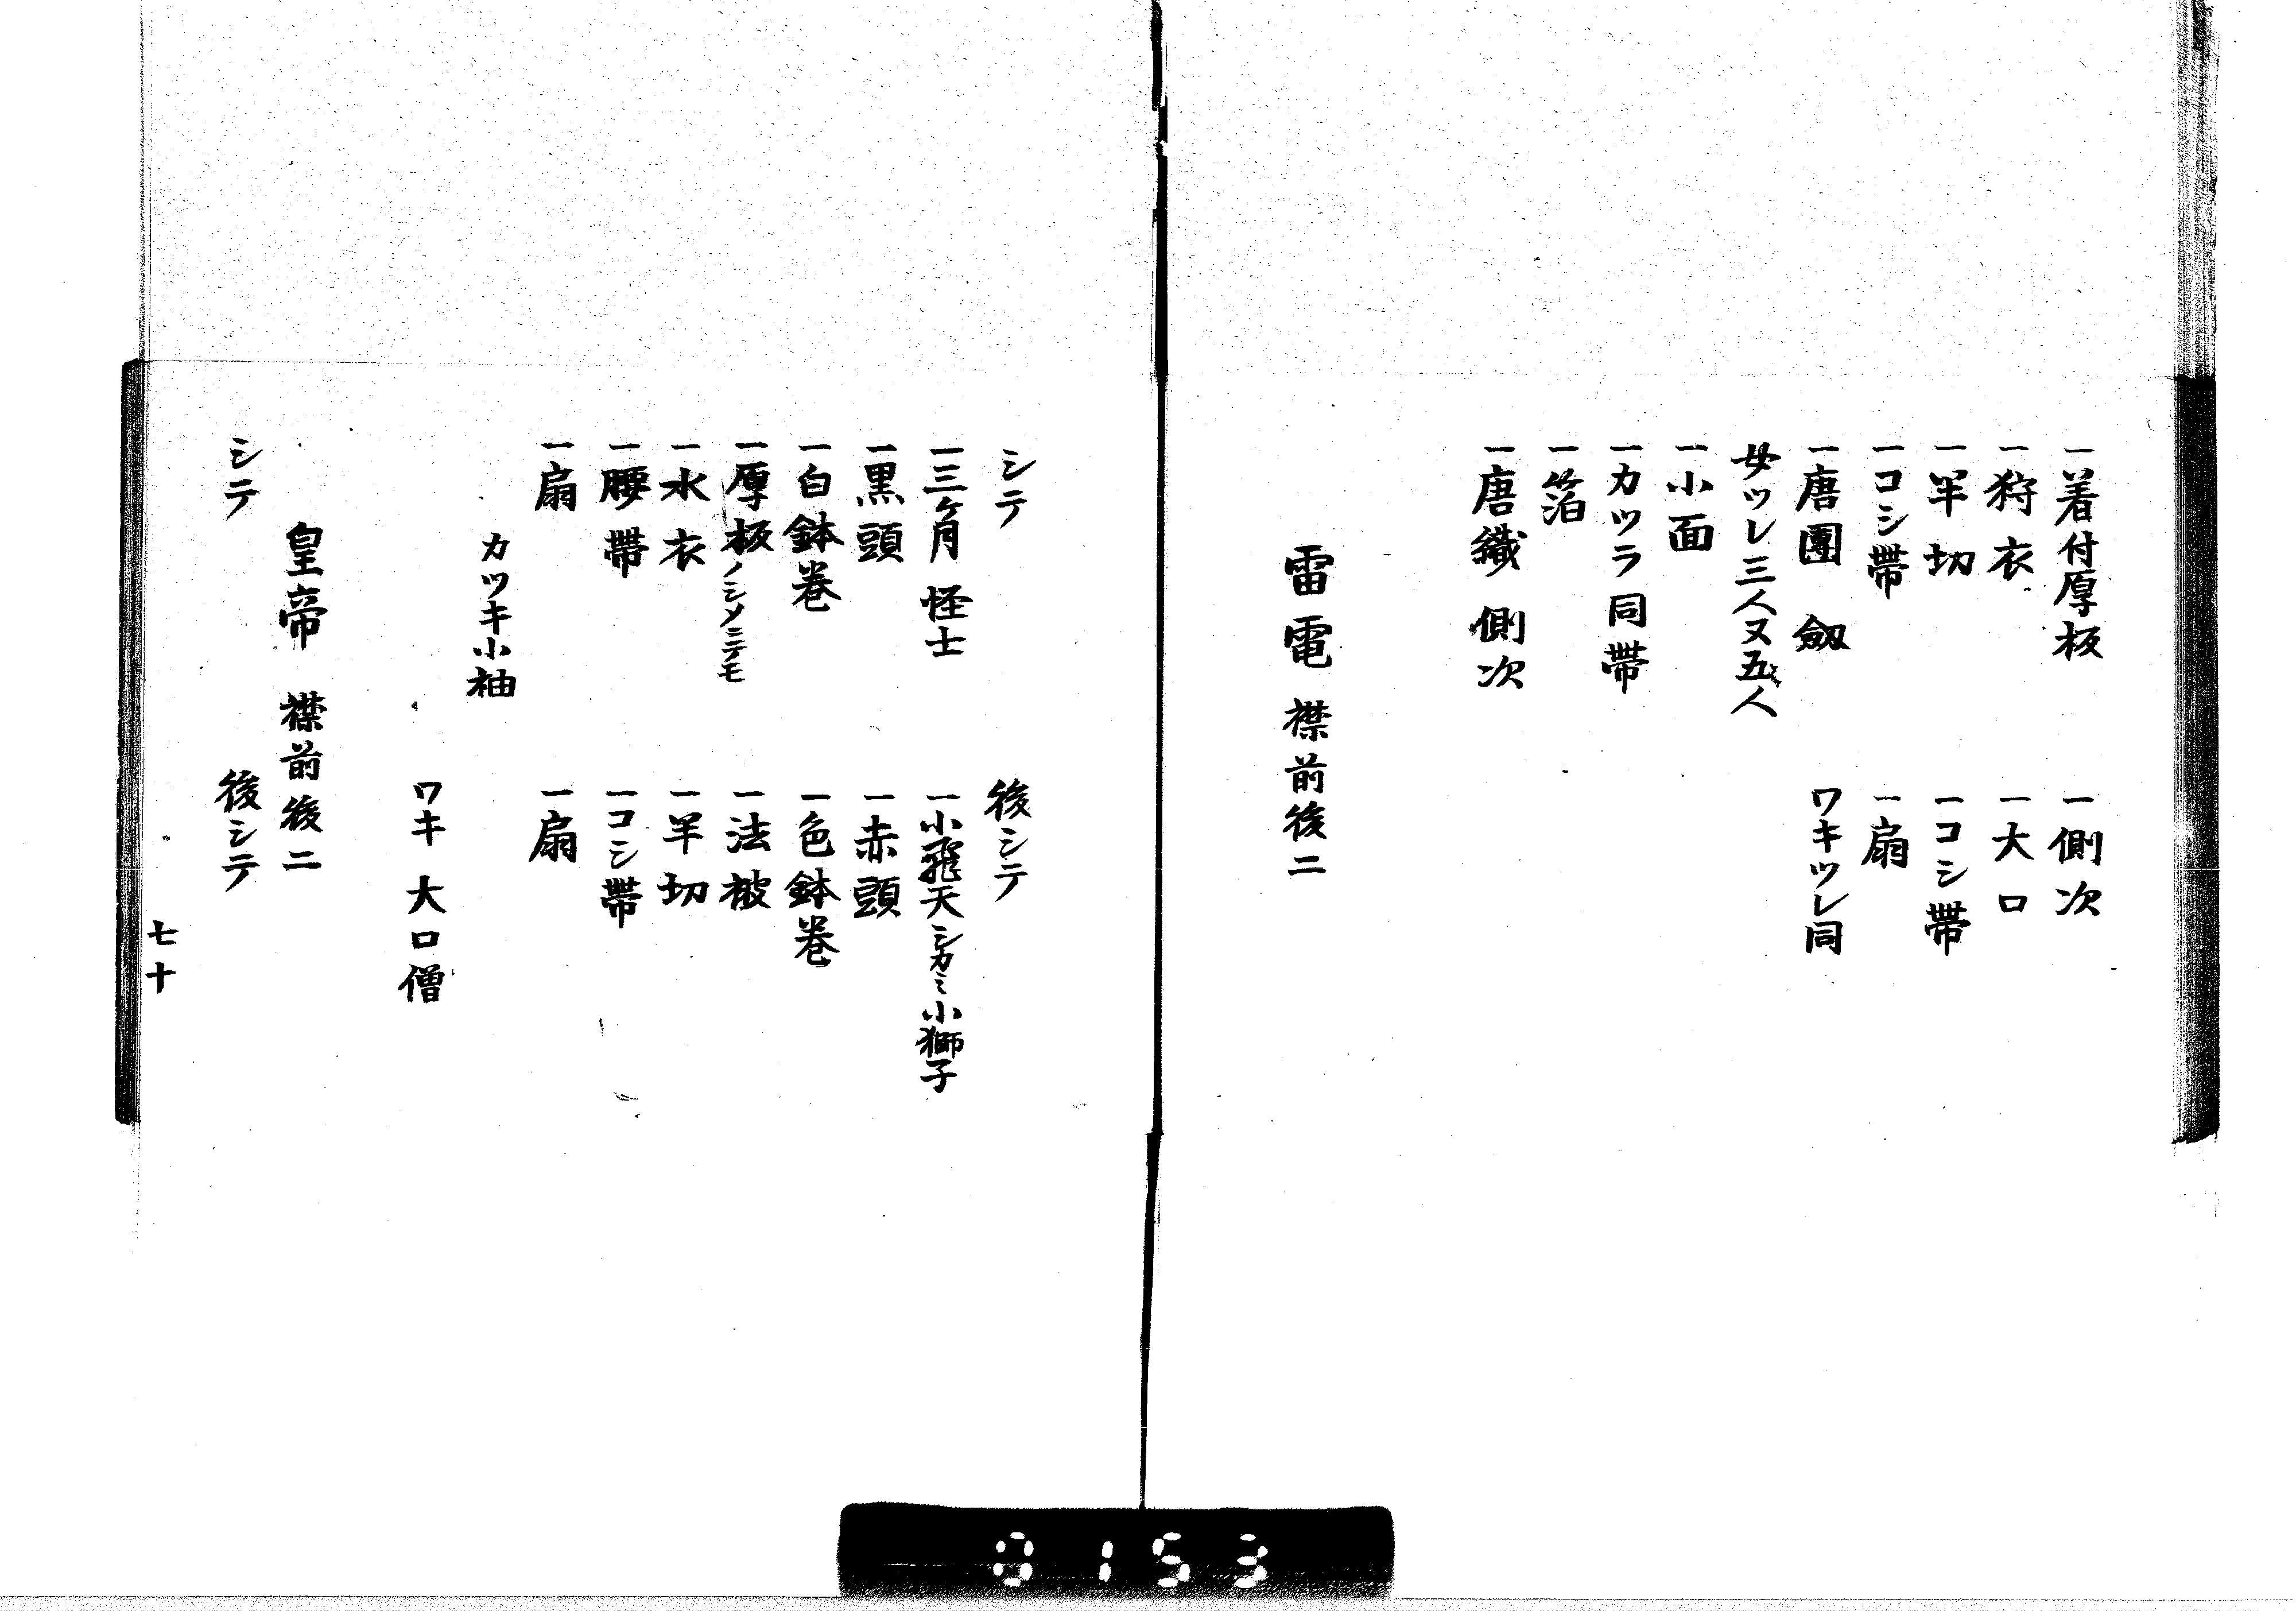 一着付厚板　一側次
一狩衣　一大口
一半切　一コシ帶
一コシ帶　一扇
一唐團　劔　ワキツレ同
女ツレ三人又五人
一小面
一カツラ同帶
一箔
一唐織　側次
雷電　襟前後二
シテ　後シテ
一三ケ月　怪士　一小飛天シカミ小獅子
一黒頭　一赤頭
一白鉢巻　一色鉢巻
一厚板ノシメニテモ　一法被
一水衣　一半切
一腰帶　一コシ帶
一扇　一扇
カツキ小袖
ワキ　大口僧
皇帝　襟前後二
シテ　後シテ
七十
0153